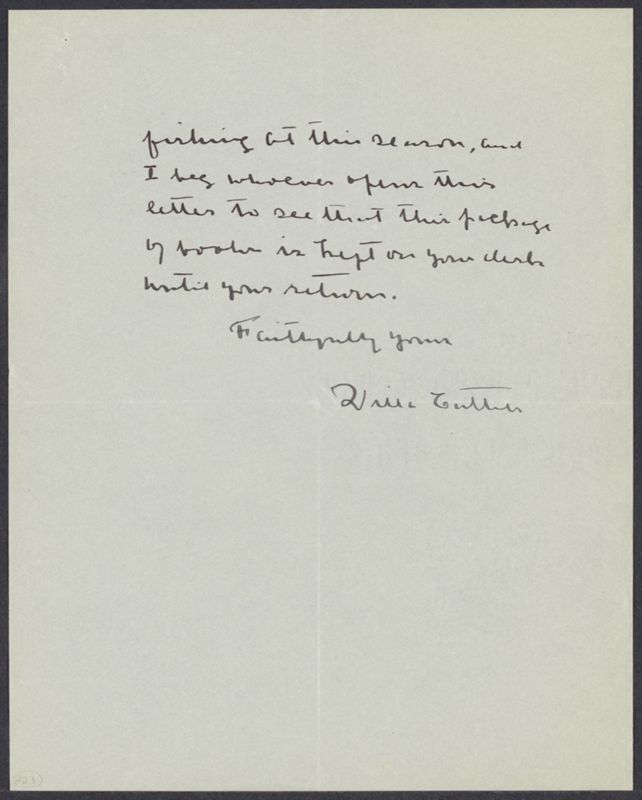 fishing at this season, and
I beg whoever opens this
letter to see that this package
of books is kept on your desk
until your return.
Faithfully yours
Willa Cather
223